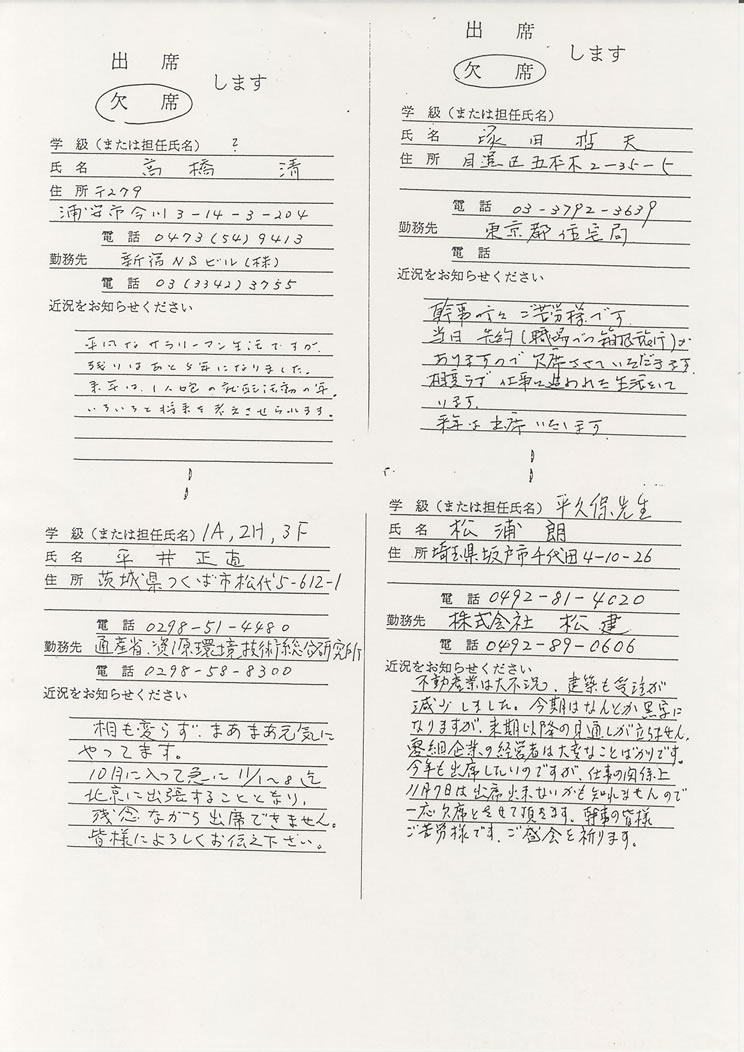 出席
欠席
します
学 級（または担任氏名） ?
氏 名 高橋 清
住 所 〒279
浦安市今川3-14-3-204
電 話 0473(54)9413
勤務先 新宿NSビル(株)
電 話 03(3342)3755
近況をお知らせください
平凡なサラリーマン生活ですが、
残りはあと5年になりました。
来年は、1人娘の就職活動の年。
いろいろと将来を考えさせられます。
学 級（または担任氏名） 1A,2H,3F
氏 名 平井正直
住 所 茨城県つくば市松代5-612-1
電 話 0298-51-4480
勤務先 通産省、資源環境技術総合研究所
電 話 0298-58-8300
近況をお知らせください
相も変らず、まあまあ元気に
やってます。
10月に入って急に11/1～8迄
北京に出張することとなり、
残念ながら出席できません。
皆様によろしくお伝え下さい。
出席
欠席
します
学 級（または担任氏名）
氏 名 塚田哲夫
住 所 目黒区五本木2-35-5
電 話 03-3792-3639
勤務先 東京都住宅局
電 話
近況をお知らせください
幹事の方々ご苦労様です
当日先約(職場での箱根旅行)が
ありますので欠席させていただきます.
相変らず仕事に追われた生活をして
います.
来年は出席いたします
学 級（または担任氏名） 平久保先生
氏 名 松浦 朗
住 所 埼玉県坂戸市千代田4-10-26
電 話 0492-81-4020
勤務先 株式会社 松建
電 話 0492-89-0606
近況をお知らせください
不動産業は大不況、建築も受注が
減少しました。今期はなんとか黒字に
なりますが、来期以降の見通しが立ちません。
零細企業の経営者は大変なことばかりです。
今年も出席したいのですが、仕事の関係上
11月7日は出席出来ないかも知れませんので
一応欠席とさせて頂きます。幹事の皆様
ご苦労様です。ご盛会を祈ります。